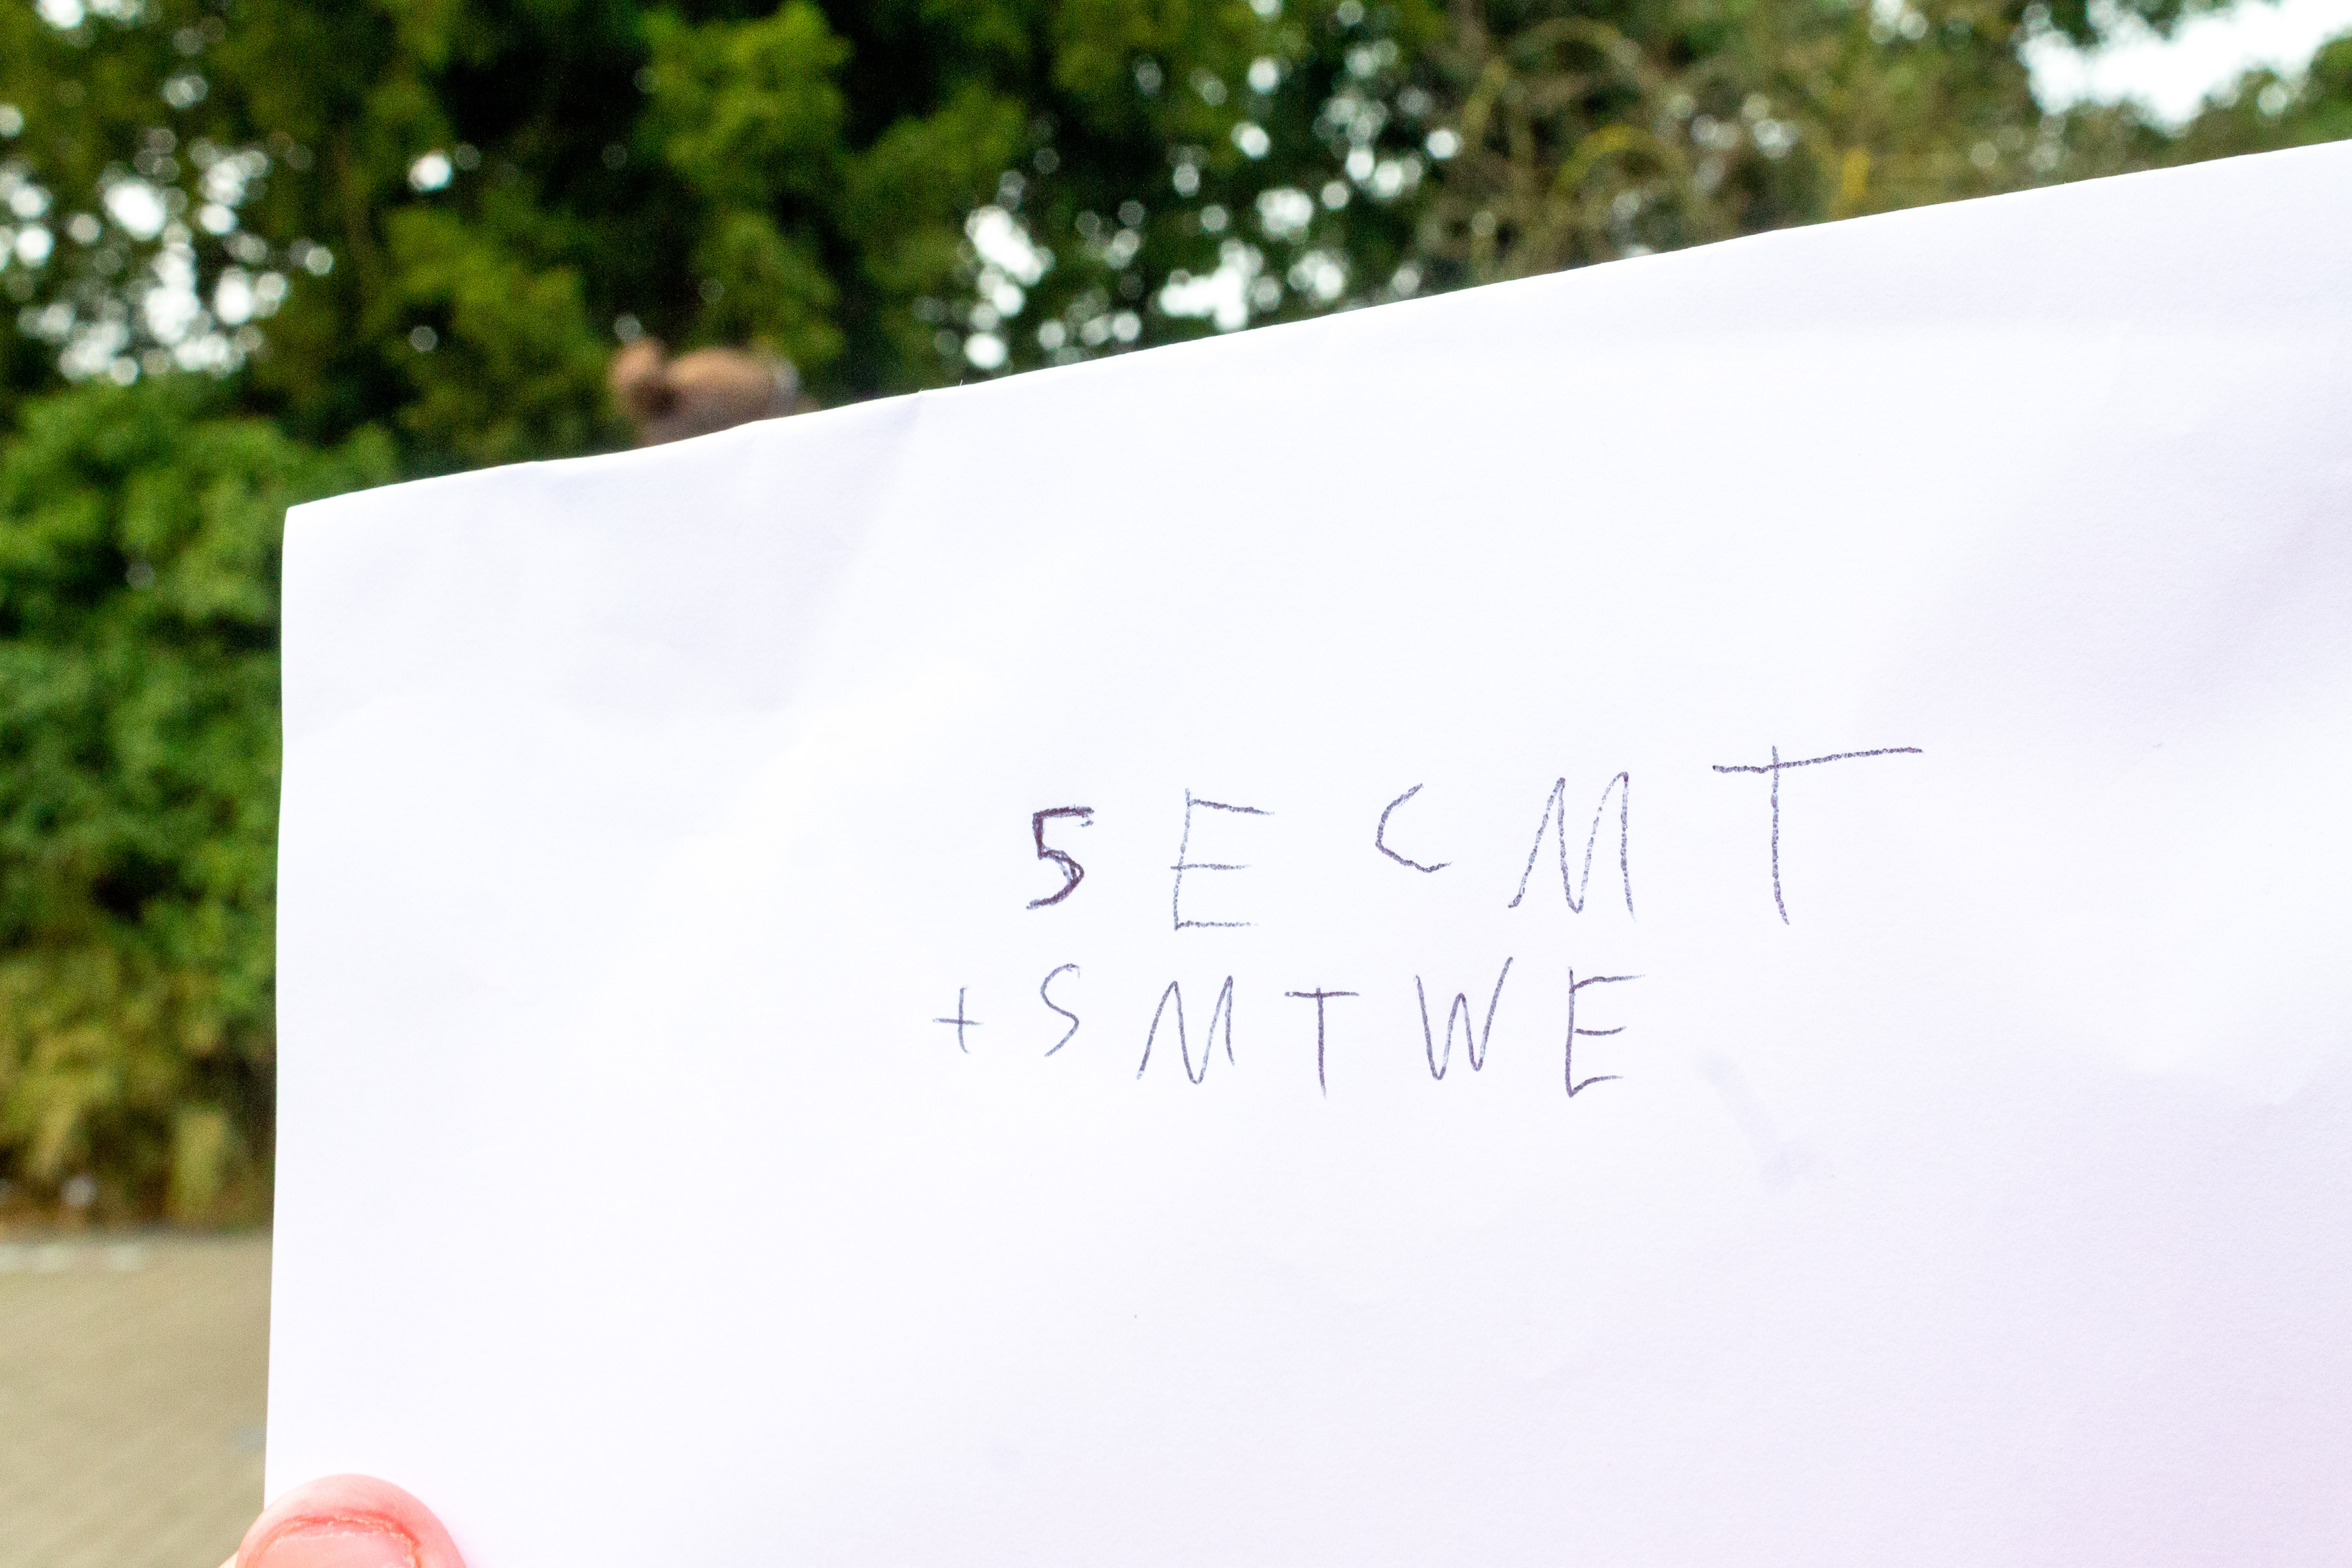 5 E C M T
+ S M T W E